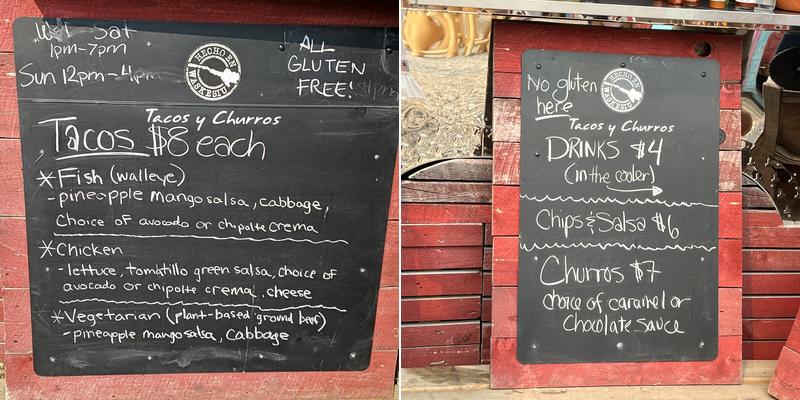 Wed - Sat
1pm-7pm
Sun 12pm-4pm
HECHO EN
WASKESIU
ALL
GLUTEN
FREE!
Tacos y Churros
Tacos $8 each
*Fish (walleye)
- pineapple mango salsa, cabbage,
Choice of avocado or chipotle crema
*Chicken
- lettuce, tomatillo green salsa, choice of
avocado or chipotle crema, cheese
*Vegetarian (plant-based ground beef)
- pineapple mango salsa, cabbage
No gluten
here
HECHO EN
WASKESIU
Tacos y Churros
DRINKS $4
(in the cooler)
Chips & Salsa $6
Churros $7
choice of caramel or
Chocolate sauce